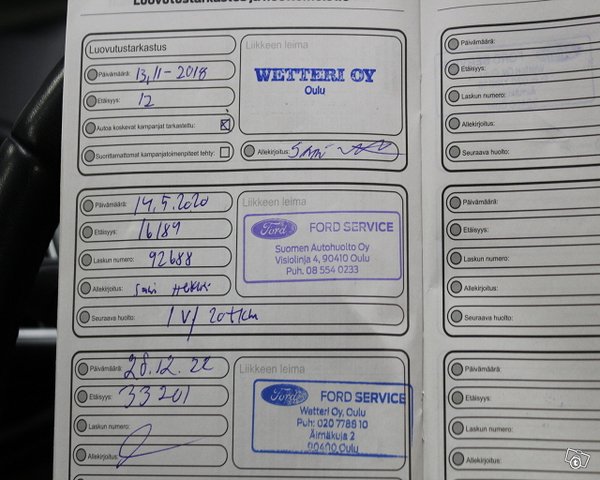 Luovutustarkastus
Liikkeen leima
Päivämäärä: 13,11-2018
WETTERI OY
Oulu
Etäisyys: 12
Autoa koskevat kampanjat tarkastettu:
Suorittamattomat kampanjatoimenpiteet tehty:
Allekirjoitus: Sami
Päivämäärä: 14.5.2020
Liikkeen leima
Etäisyys: 16189
Ford FORD SERVICE
Suomen Autohuolto Oy
Visiolinja 4, 90410 Oulu
Puh. 08 554 0233
Laskun numero: 92688
Allekirjoitus: Sami
Seuraava huolto: 1V/20tkm
Päivämäärä: 28.12.22
Liikkeen leima
Etäisyys: 33201
Ford FORD SERVICE
Wetteri Oy, Oulu
Puh: 020 7788 10
Äimäkuja 2
90400 Oulu
Laskun numero:
Allekirjoitus:
Päivämäärä:
Etäisyys:
Laskun numero:
Allekirjoitus:
Seuraava huolto:
Päivämäärä:
Etäisyys:
Laskun numero:
Allekirjoitus:
Seuraava huolto:
Päivämäärä:
Etäisyys:
Laskun numero:
Allekirjoitus: